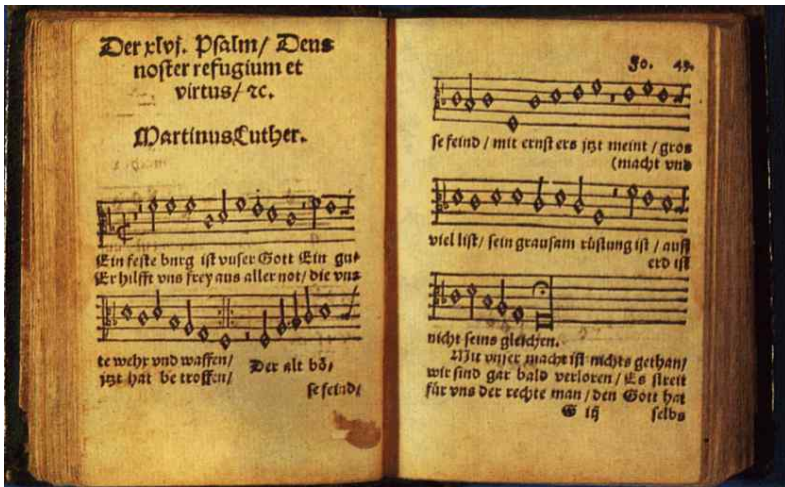 Der xlvj. Psalm/ Deus
noster refugium et
virtus/ ꝛc.
Martinus Luther.
Ein feste burg ist vnser Gott Ein gu⸗
Er hilfft vns frey aus aller not/ die vns
te wehr vnd waffen/
itzt hat be troffen/
Der alt bö⸗
se feind/
Fo. 43.
se feind / mit ernst ers itzt meint / gros
(macht vnd
viel list/ sein grausam rüstung ist / auff
erd ist
nicht seins gleichen.
Mit vnser macht ist nichts gethan/
wir sind gar bald verloren / Es streit
für vns der rechte man / den Gott hat
G iij selbs